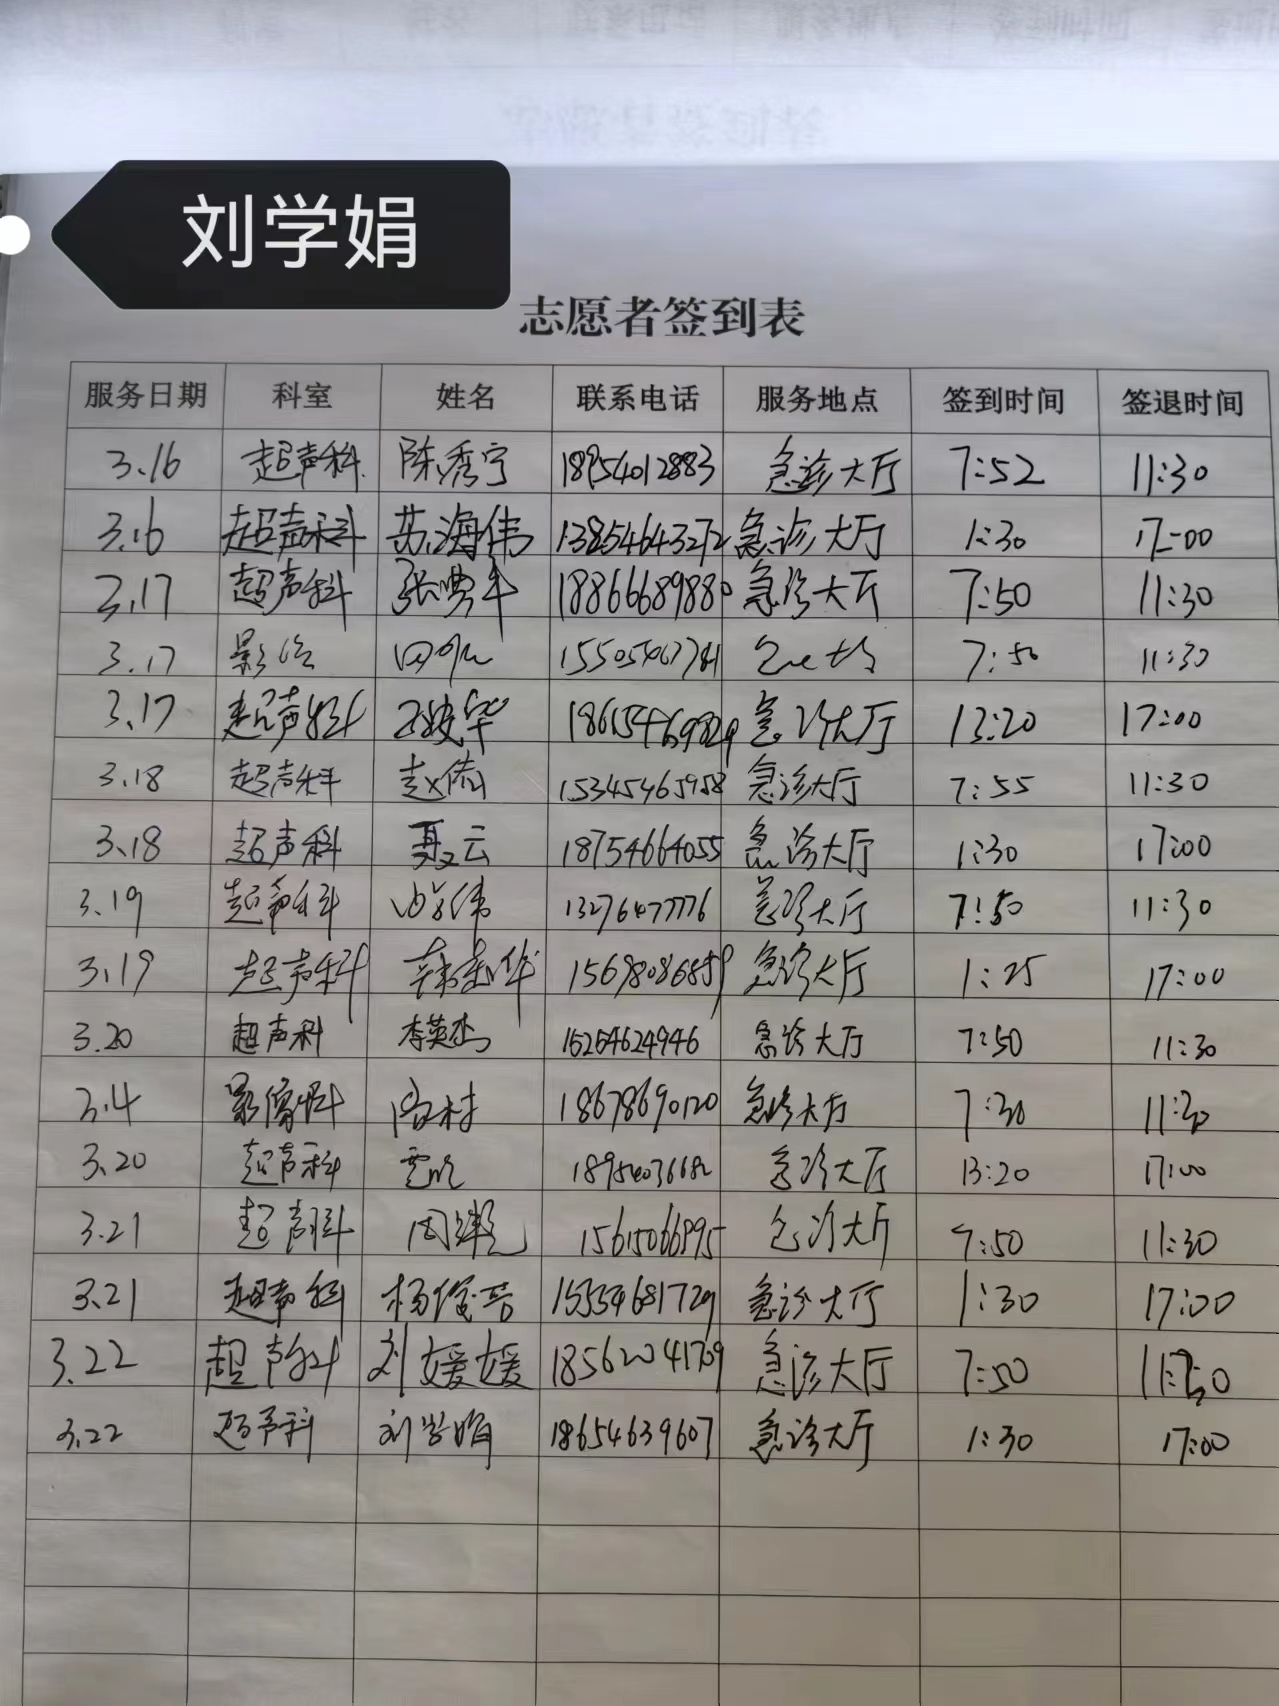 刘学娟
志愿者签到表
服务日期 科室 姓名 联系电话 服务地点 签到时间 签退时间
3.16 超声科 陈秀宁 18954012883 急诊大厅 7:52 11:30
3.16 超声科 苏海伟 13854643272 急诊大厅 1:30 17:00
3.17 超声科 18866689880 急诊大厅 7:50 11:30
3.17 影像 7:50 11:30
3.17 超声科 急诊大厅 13:20 17:00
3.18 超声科 15345465958 急诊大厅 7:55 11:30
3.18 超声科 聂云 18754664055 急诊大厅 1:30 17:00
3.19 超声科 13276477776 急诊大厅 7:50 11:30
3.19 超声科 15698086859 急诊大厅 1:25 17:00
3.20 超声科 李英杰 15254624946 急诊大厅 7:50 11:30
3.4 影像科 18678690120 急诊大厅 7:30 11:30
3.20 超声科 急诊大厅 13:20 17:00
3.21 超声科 急诊大厅 7:50 11:30
3.21 超声科 15554681729 急诊大厅 1:30 17:00
3.22 超声科 刘媛媛 18562041709 急诊大厅 7:50
3.22 超声科 刘学娟 18654639607 急诊大厅 1:30 17:00